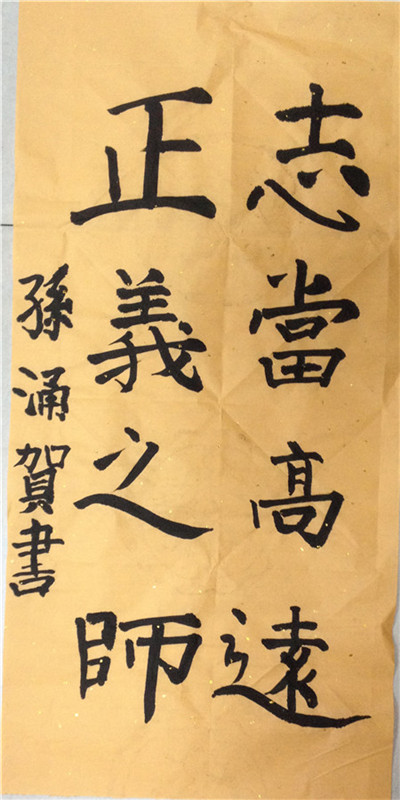 志當高遠
正義之師
孫涌賀書